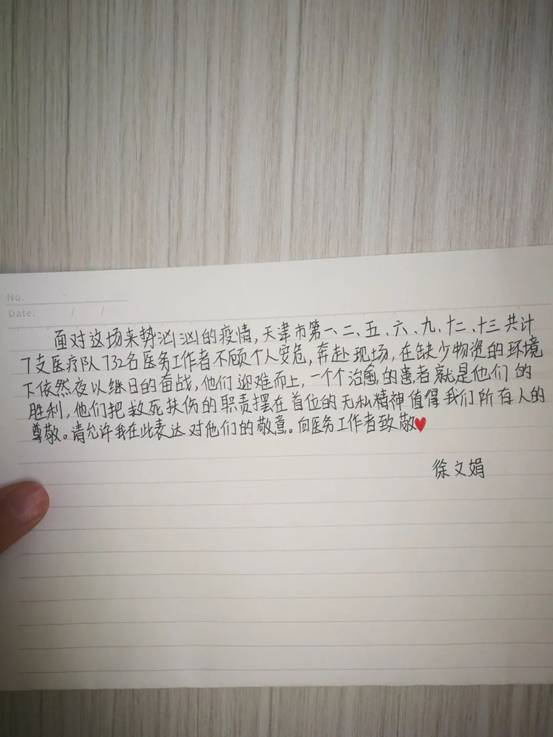 No.
Date. / /
面对这场来势汹汹的疫情,天津市第一、二、五、六、九、十二、十三共计
7支医疗队732名医务工作者不顾个人安危,奔赴现场,在缺少物资的环境
下依然夜以继日的奋战,他们迎难而上,一个个治愈的患者就是他们的
胜利,他们把救死扶伤的职责摆在首位的无私精神值得我们所有人的
尊敬。请允许我在此表达对他们的敬意。向医务工作者致敬♥
徐文娟